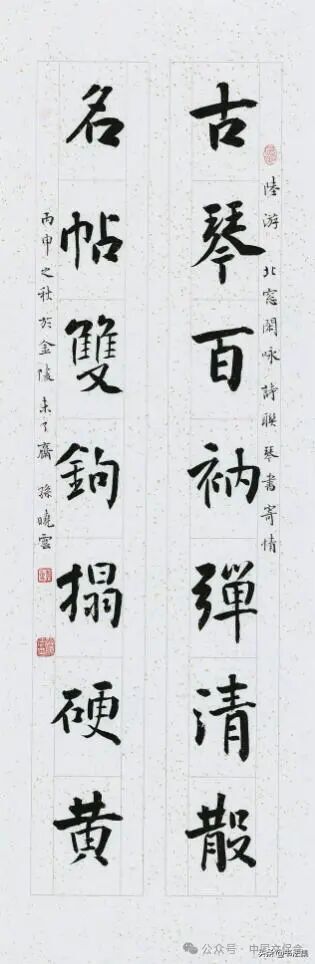 陸游 北窓閑咏詩聯 琴書寄情
古琴百衲彈清散
名帖雙鉤搨硬黄
丙申之秋於金陵未了齋 孫曉雲
公众号